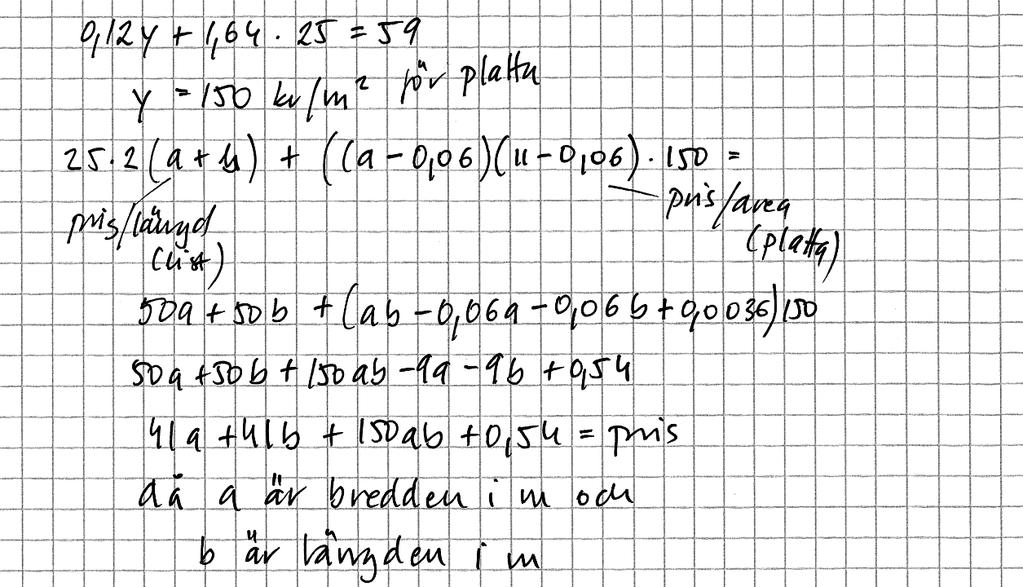 0,12y + 1,64 · 25 = 59
y = 150 kr/m² för platta
25·2(a + b) + ((a - 0,06)(u - 0,06) · 150 =
pris/längd
(list)
pris/area
(platta)
50a + 50b + (ab - 0,06a - 0,06b + 0,0036)150
50a + 50b + 150ab - 9a - 9b + 0,54
41a + 41b + 150ab + 0,54 = pris
då a är bredden i m och
b är längden i m